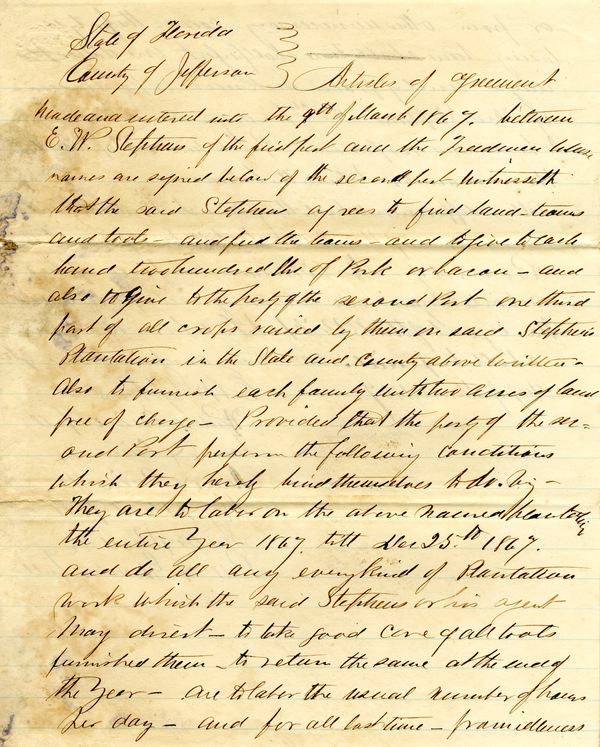 State of Florida
County of Jefferson } Articles of Greement
made and entered into the 9th of March 1867. between
E. W. Stephens of the first part and the Freedmen whose
names are signed below of the second part Witnesseth
that the said Stephens agrees to find land - teams
and tools - and feed the teams - and to give to each
hand two hundred lbs of Pork or bacon - and
also to Give to the party of the second Part one third
part of all crops raised by them on said Stephens
Plantation in the State and County above written -
Also to furnish each family with two acres of land
free of charge - Provided that the party of the sec-
ond Part perform the following conditions
which they herely bind themselves to do. viz -
They are to labor on the above named plantation
the entire Year 1867. till Dec 25.th 1867.
and do all any every kind of Plantation
work which the said Stephens or his agent
May direct - to take good care of all tools
furnished them - to return the same at the end of
the Year - are to labor the usual number of hours
Per day - and for all lost time - from idleness